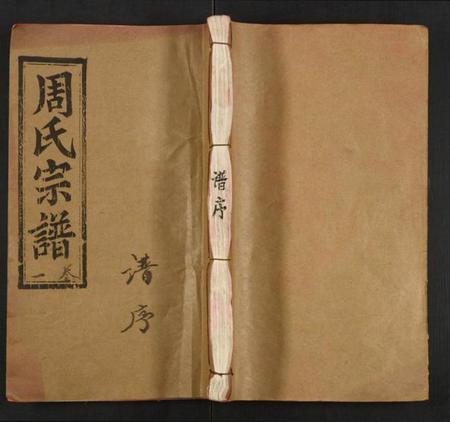 周氏宗譜
卷一
谱序
谱序